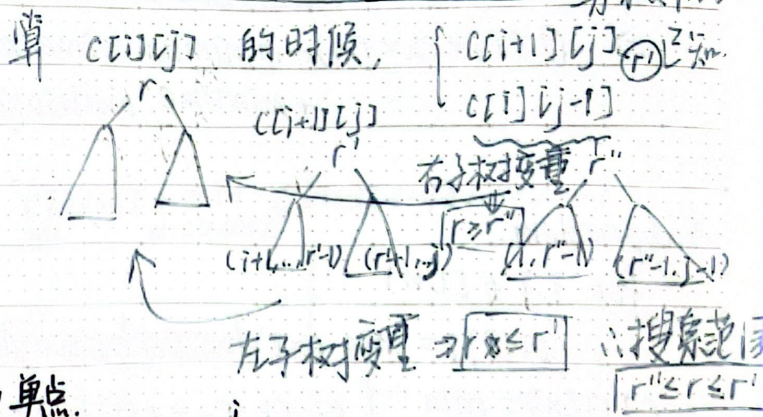 算 C[i][j] 的时候, { C[i+1][j] r' 已知.
C[i][j-1]
r
C[i+1][j]
r'
右子树变重 r''
r≥r''
(i+1,...r'-1) (r'+1...j) (i, r''-1) (r''-1, j-1)
左子树变重 ⇒ r≤r' ∴搜索范围
r''≤r≤r'
单点.